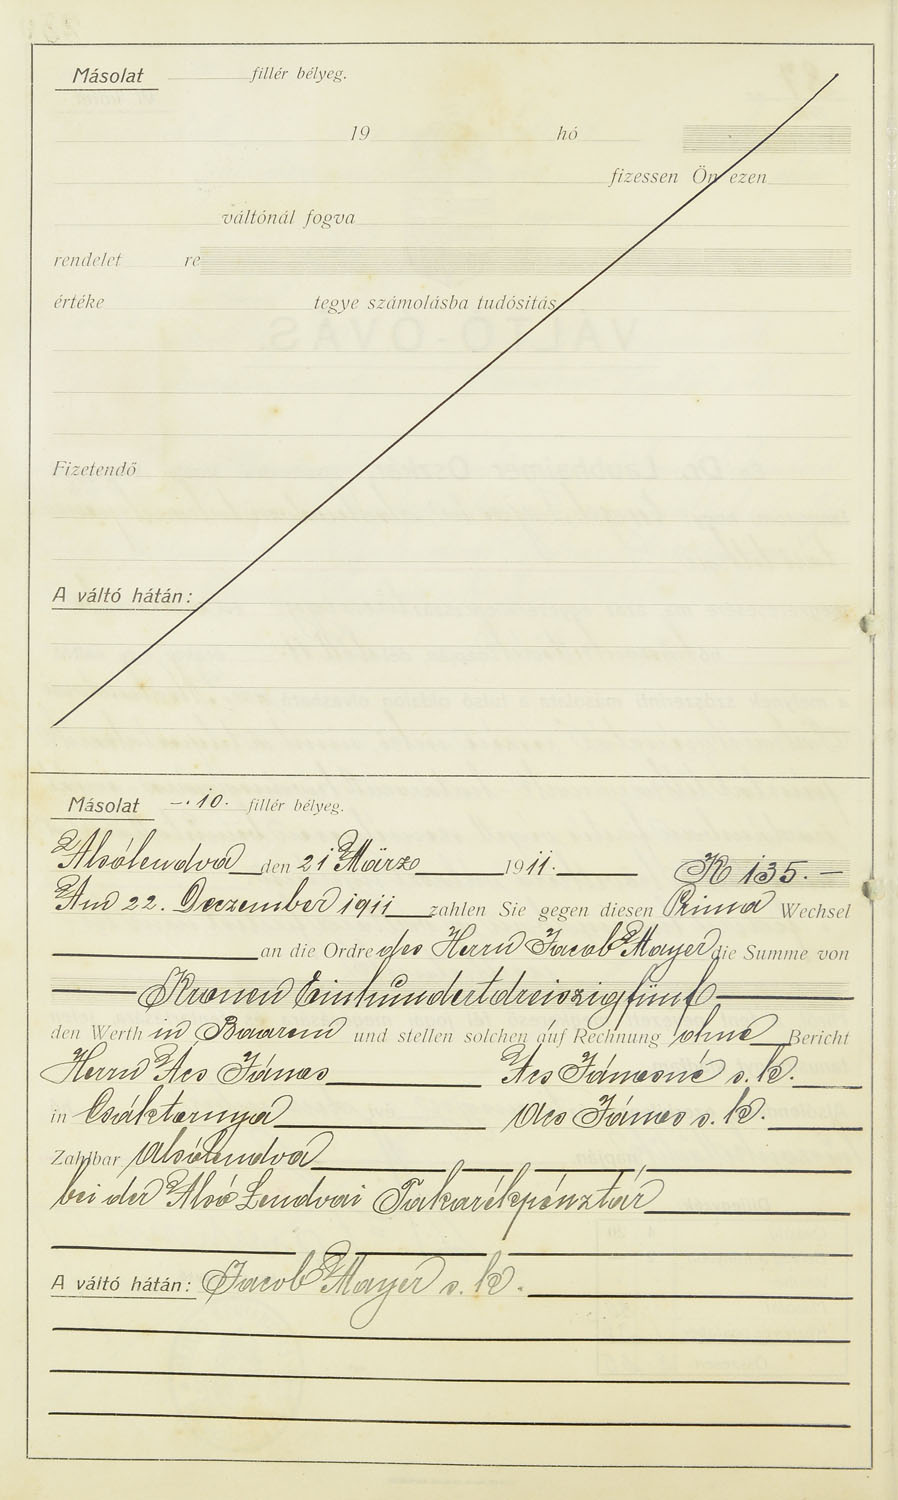 Másolat fillér bélyeg.
19 hó
fizessen Ön ezen
váltónál fogva
rendelet re
értéke tegye számolásba tudósitás
Fizetendő
A váltó hátán:
Másolat –.10. fillér bélyeg.
Alsólendva den 21 März 1911. K 135.–
Am 22. Dezember 1911 zahlen Sie gegen diesen Prima Wechsel
an die Ordre des Herrn Jacob Mayer die Summe von
Kronen Einhundertdreiszigfünf
den Werth in Baarem und stellen solchen auf Rechnung ohne Bericht
Herrn Ács János Ács Jánosné s. k.
in Csáktornya Ács János s. k.
Zahlbar Alsólendva
bei der Alsó Lendvai Takarékpénztár
A váltó hátán: Jacob Mayer s. k.